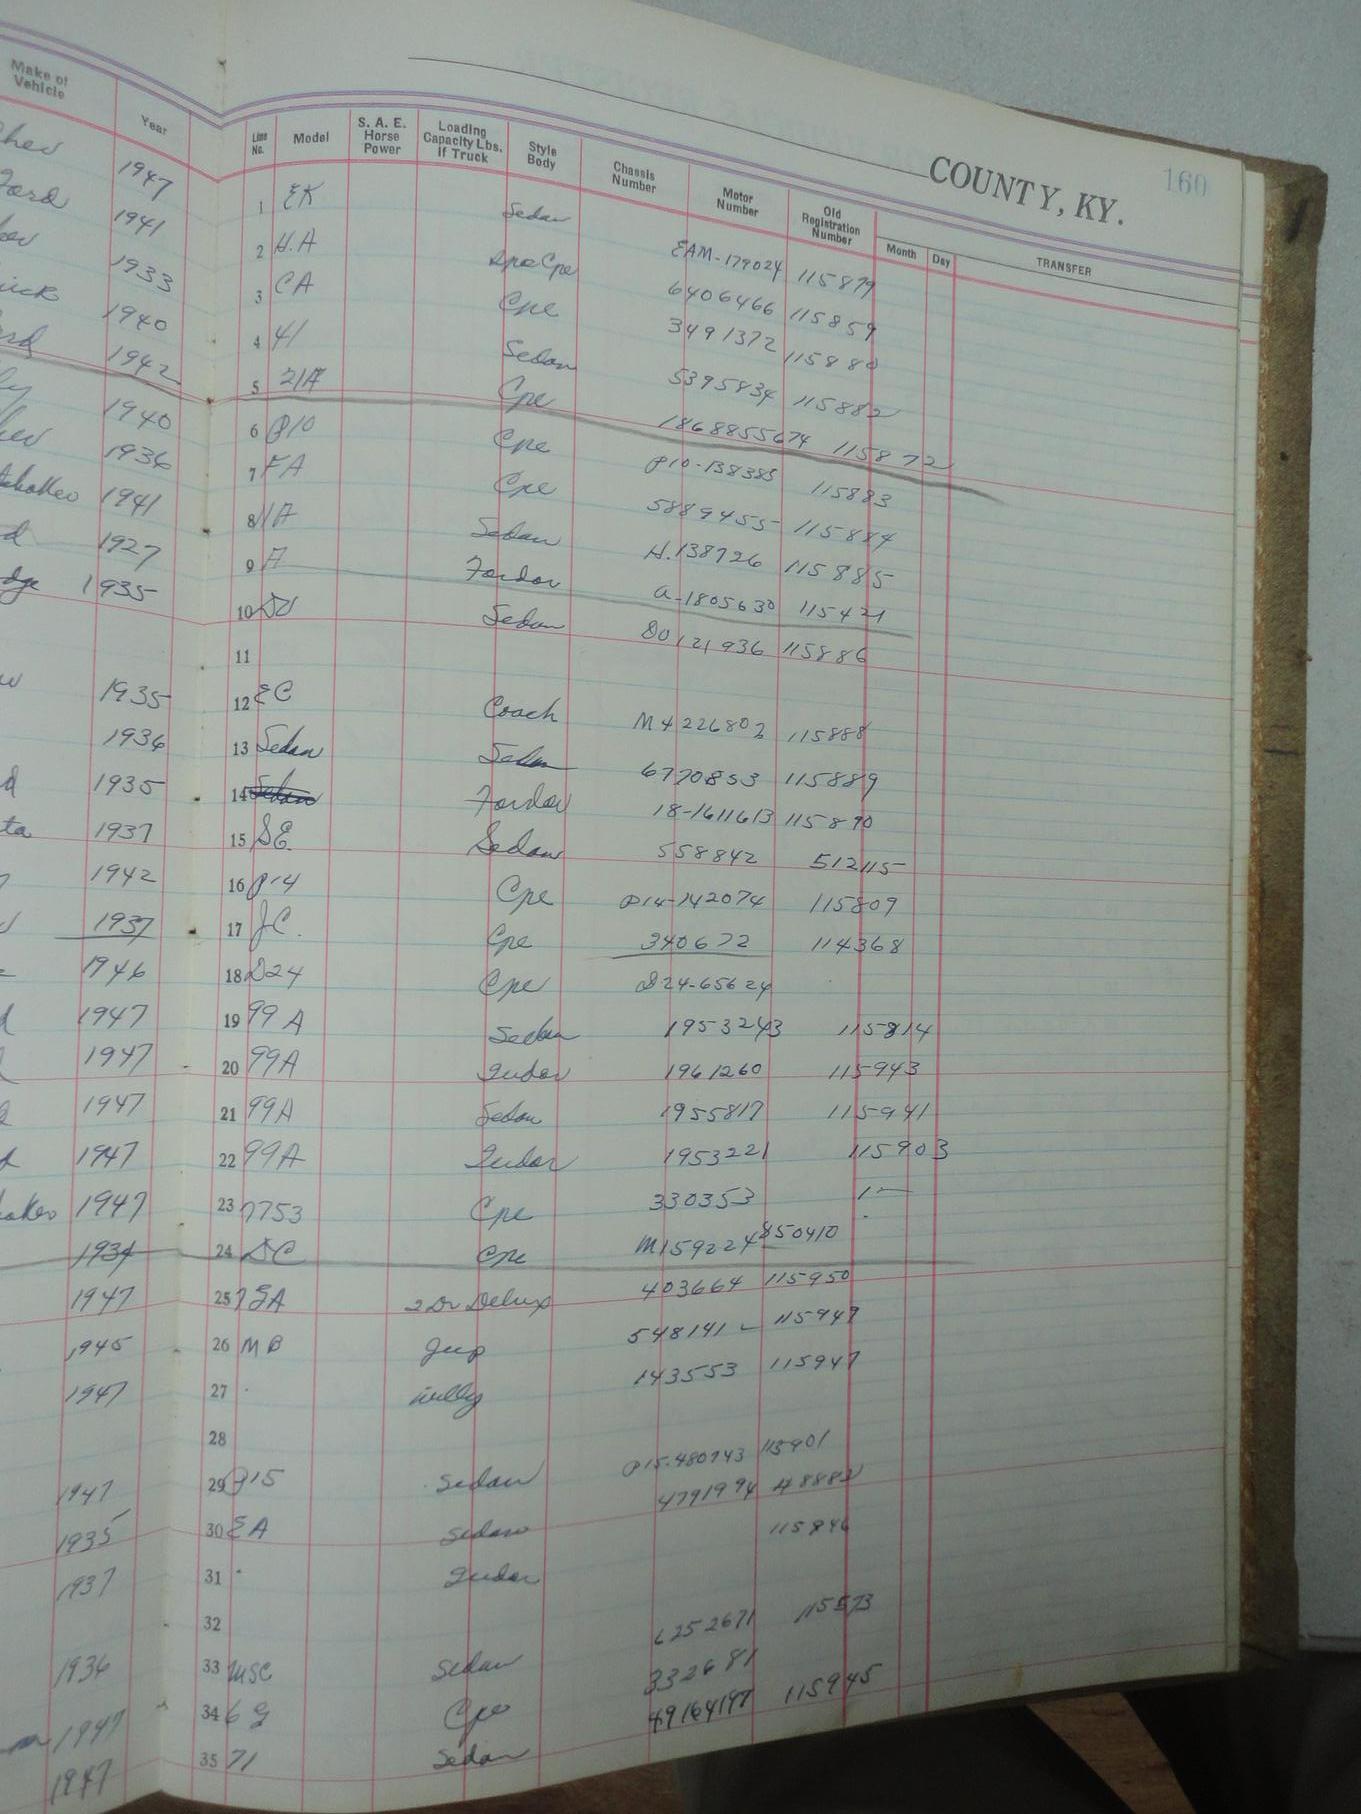 COUNTY, KY. 160
Make of Vehicle Year Line No. Model S. A. E. Horse Power Loading Capacity Lbs. if Truck Style Body Chassis Number Motor Number Old Registration Number Month Day TRANSFER
Chev 1947 1 EK Sedan EAM-179024 115879
Ford 1941 2 H.A Cpe 6406466 115859
1933 3 CA Cpe 3491372 115880
1940 4 41 Sedan 5395834 115882
1942 5 21A Cpe 1868855674 115872
1940 6 P10 Cpe P10-138385 115883
1936 7 FA Cpe 5889455 115884
1941 8 Sedan H.138726 115885
1927 9 A Fordor A-1805630 115421
1935 10 DU Sedan DU121936 115886
11
1935 12 EC Coach M4226802 115888
1936 13 Sedan Sedan 6770853 115889
1935 14 Sedan Fordor 18-1611613 115890
1937 15 SE Sedan 558842 512115
1942 16 P14 Cpe P14-142074 115809
1937 17 JC. Cpe 340672 114368
1946 18 D24 Cpe D24-65624
1947 19 99A Sedan 1953243 115814
1947 20 99A Tudor 1961260 115943
1947 21 99A Sedan 1955817 115941
1947 22 99A Tudor 1953221 115903
1947 23 7753 Cpe 330353
1934 24 DC Cpe M159224 850410
1947 25 7GA 2 Dr Delux 403664 115950
1945 26 MB Jeep 548141 - 115949
1947 27 Willy 143553 115947
28
1947 29 P15 Sedan P15-480743 115901
1935 30 EA Sedan 4791994
1937 31 Tudor 115846
32
1936 33 MSC Sedan 6252671 115573
1947 34 6G Cpe 332681
1947 35 71 Sedan 49164197 115945